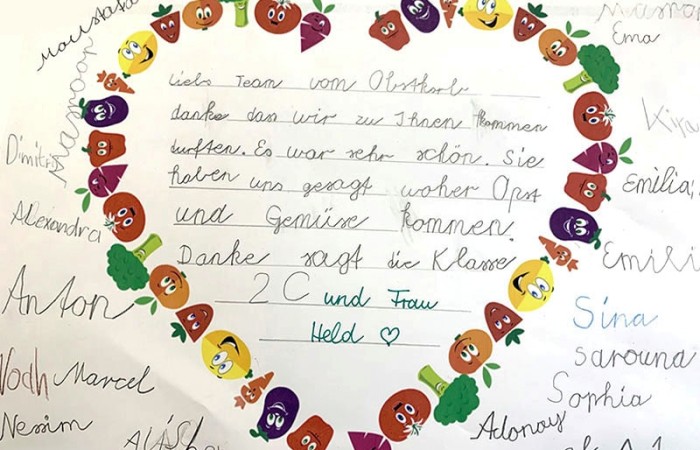 Moustafa
Ema
Maroan
Kira
Dimitri
Emilia
Alexandra
Emili
Liebs Team vom Obstkorb
danke das wir zu Ihnen kommen
durften. Es war sehr schön. Sie
haben uns gesagt woher Opst
und Gemüse kommen.
Danke sagt die Klasse
2C und Frau
Held ♡
Anton
Sina
Sarouna
Marcel
Sophia
Nessim
Adonay